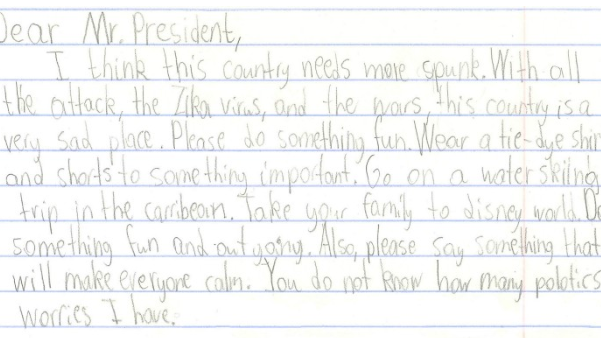 Dear Mr. President,
I think this country needs more spunk. With all
the attack, the Zika virus, and the wars, this country is a
very sad place. Please do something fun. Wear a tie-dye shir
and shorts to something important. Go on a water skiing
trip in the carribean. Take your family to disney world. Do
something fun and outgoing. Also, please say something that
will make everyone calm. You do not know how many polotics
worries I have.